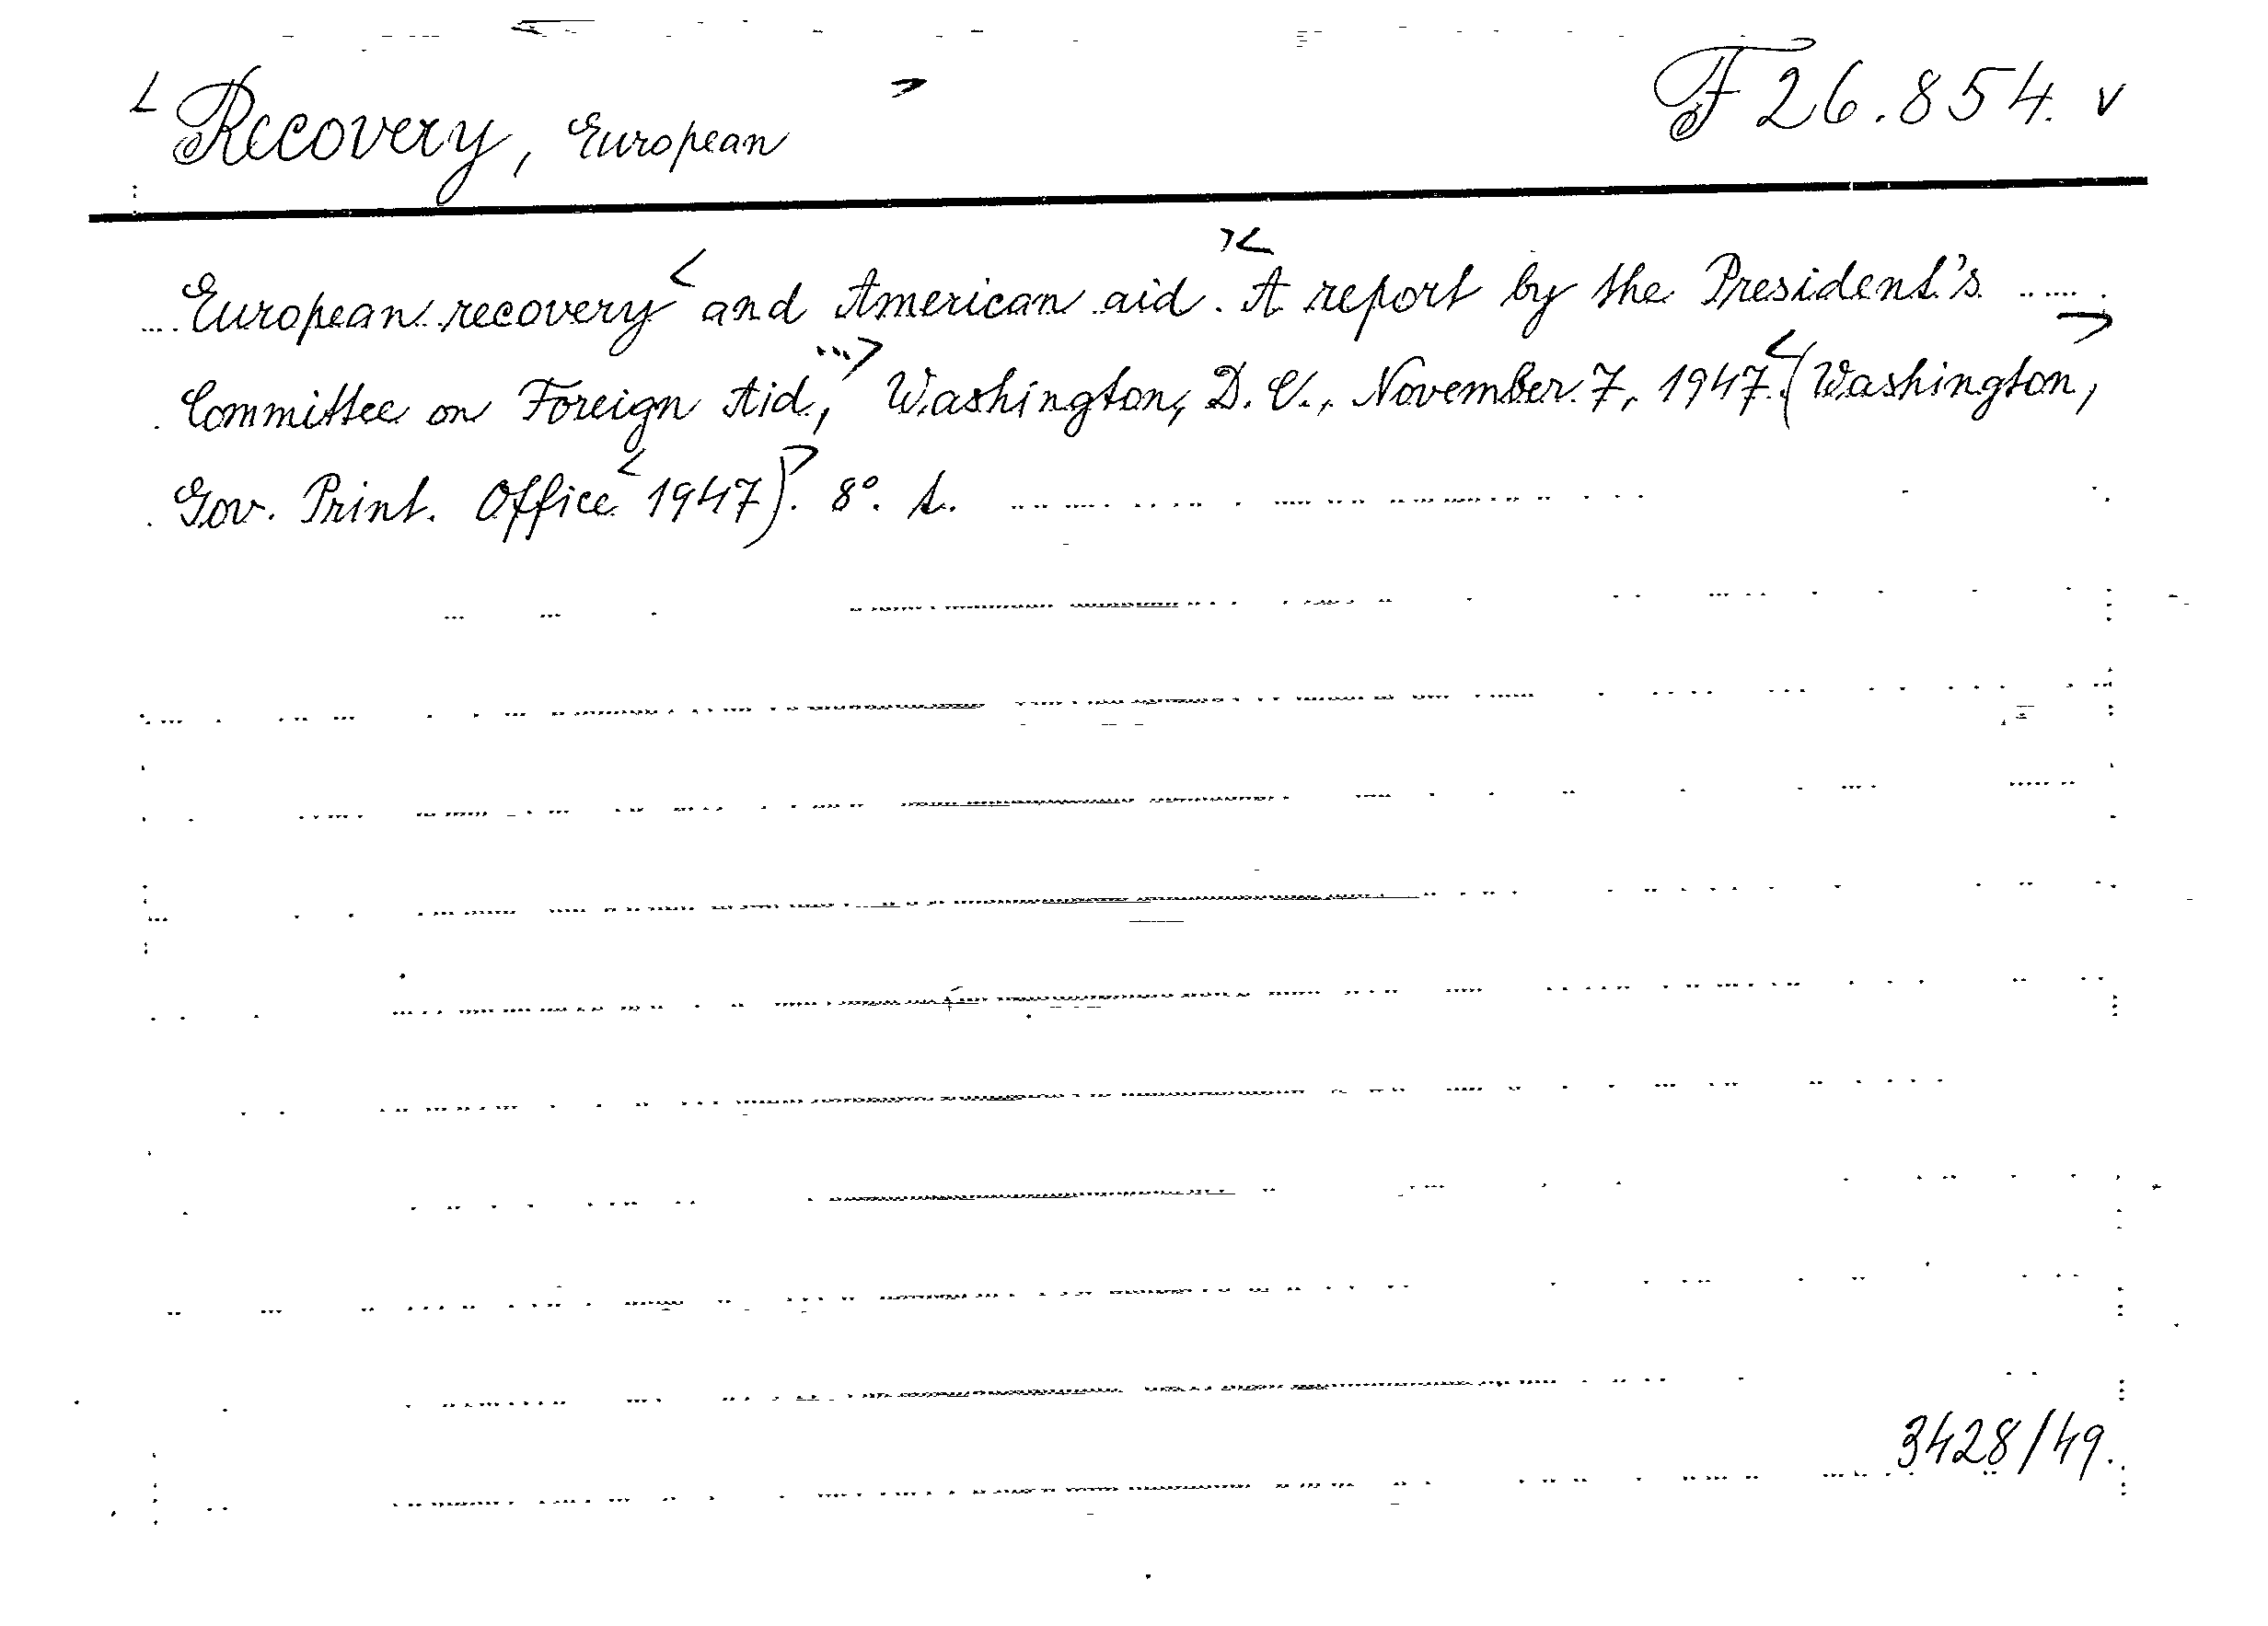 Recovery, European
F 26.854. v
European recovery and American aid. A report by the President's
Committee on Foreign Aid, Washington, D. C., November 7, 1947. (Washington,
Gov. Print. Office 1947). 8°. t.
3428/49.